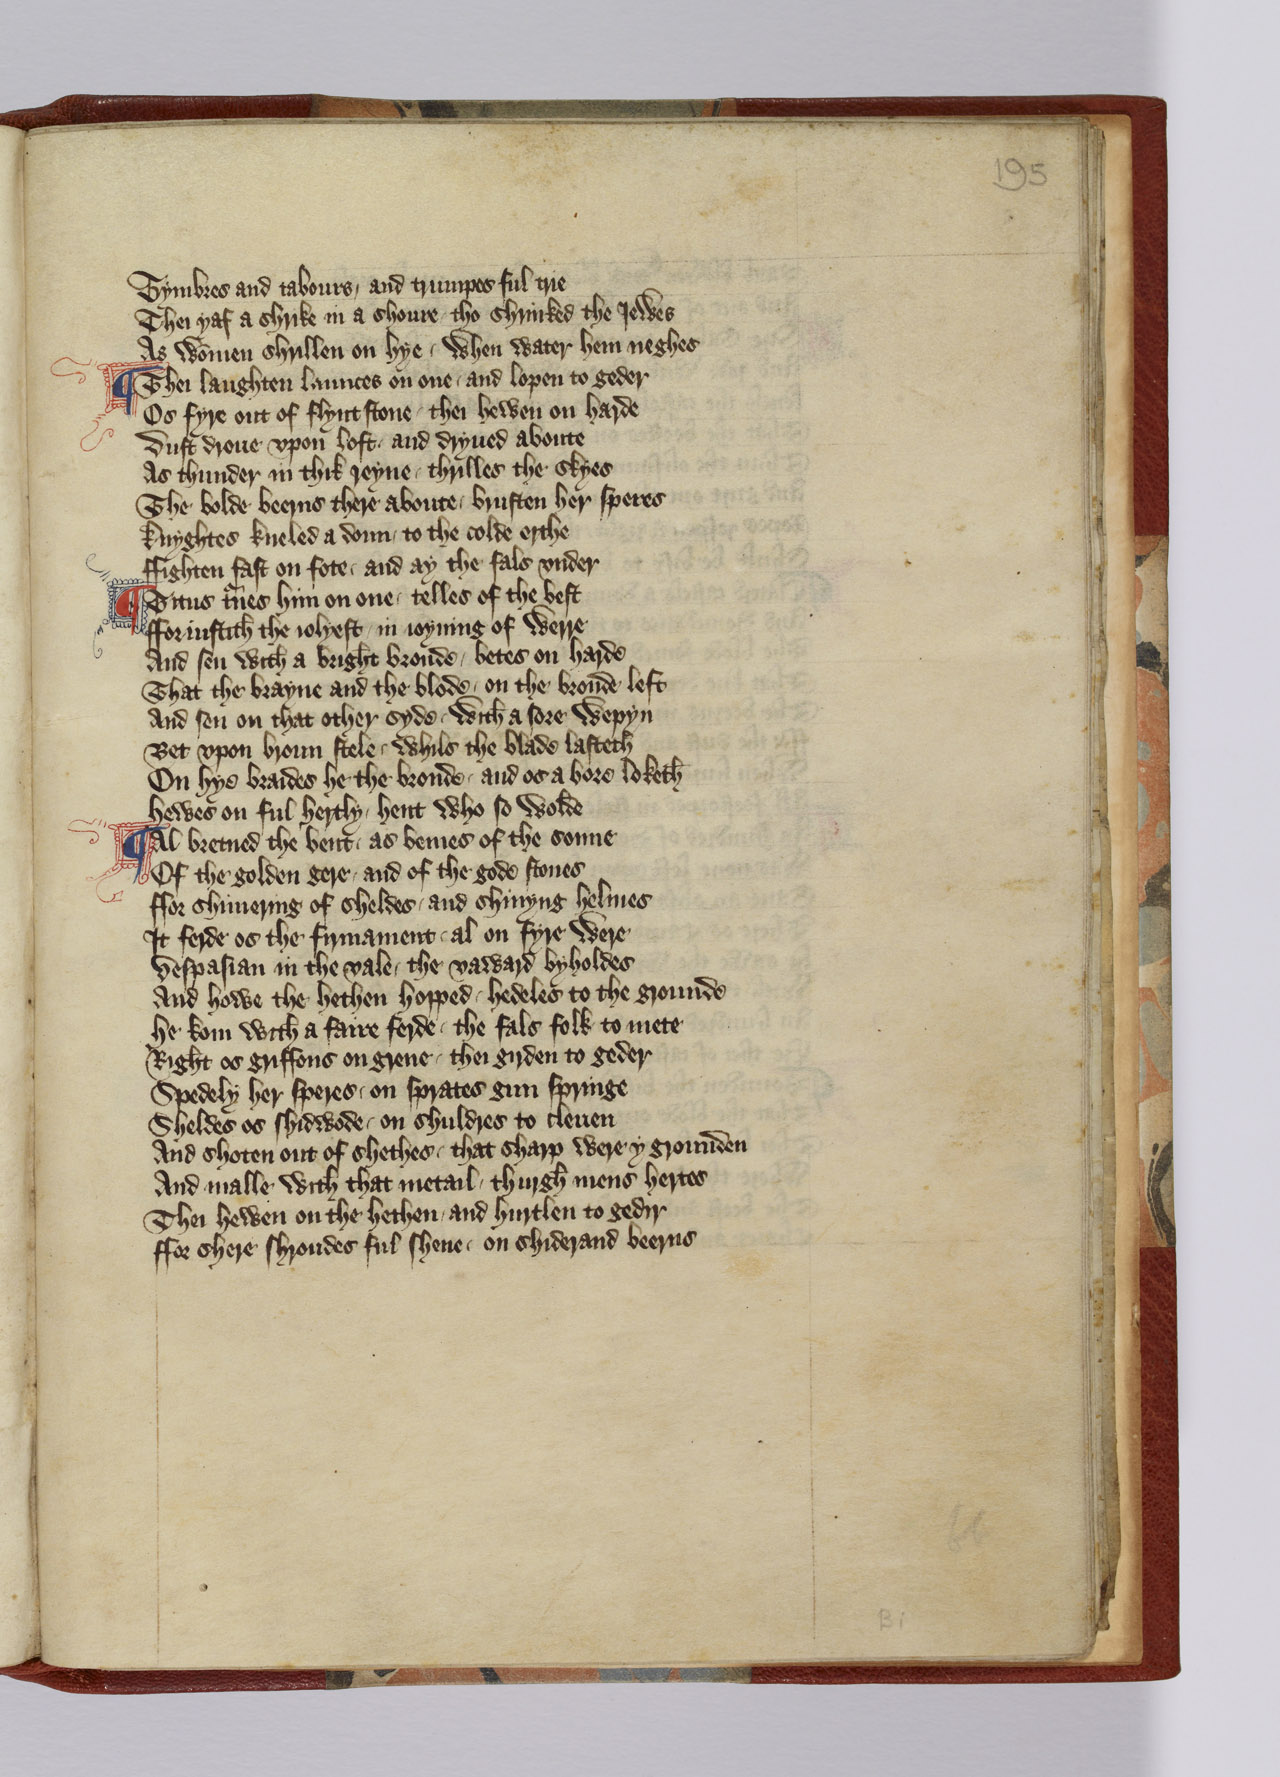 195
Tymbres and tabours, and trumpes ful trie
Thei yaf a shrike in a shoure, tho shrinked the Jewes
As women shrillen on hye, when water hem neghes
¶ Thei laughten launces on one, and lopen to geder
Os fyre out of flynt stone, thei hewen on harde
Dust droue vpon loft, and dryued aboute
As thunder in thik reyne, thrilles the skyes
The bolde beerns there aboute, brusten her speres
knyghtes kneled a doun, to the colde erthe
ffighten fast on fote, and ay the fals vnder
¶ Titus t̉nes him on one, telles of the best
ffor iustith the iolyest, in ioyning of werre
And sen with a bright bronde, betes on harde
That the brayne and the blode, on the bronde left
And sen on that other syde, with a sore wepyn
Bet vpon broun stele, whils the blade lasteth
On hye braides he the bronde, and os a bore loketh
hewes on ful hertly, hent who so wolde
¶ Al bretned the bent, as bemes of the sonne
Of the golden gere, and of the gode stones
ffor shimering of sheldes, and shinyng helmes
It ferde os the firmament, al on fyre were
Vespasian in the vale, the vaward byholdes
And howe the hethen hopped, hedeles to the grounde
he kom with a faire ferde, the fals folk to mete
Right os griffons on grene, thei girden to geder
Spedely her speres, on sprates gun springe
Sheldes os shidwode, on shuldres to cleuen
And shoten out of shethes, that sharp were y grounden
And malle with that metail, thurgh mens hertes
Thei hewen on the hethen, and hurtlen to gedir
ffor shere shroudes ful shene, on shiderand beerns
66
B i